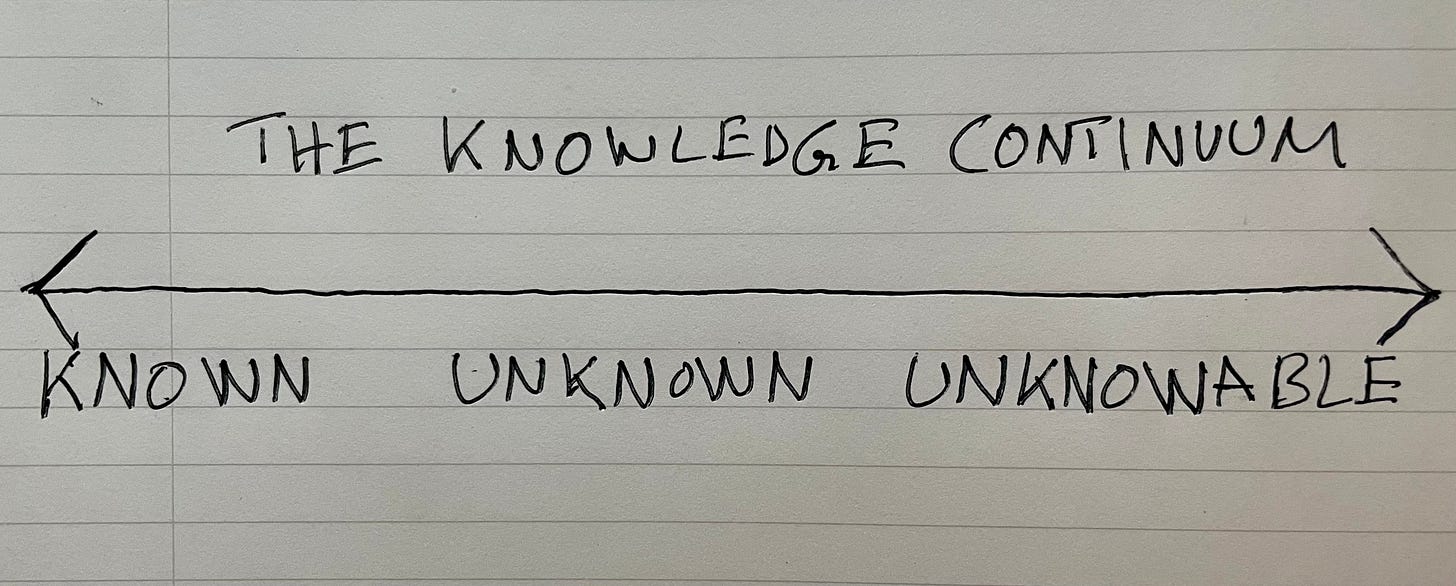 THE KNOWLEDGE CONTINUUM
KNOWN UNKNOWN UNKNOWABLE